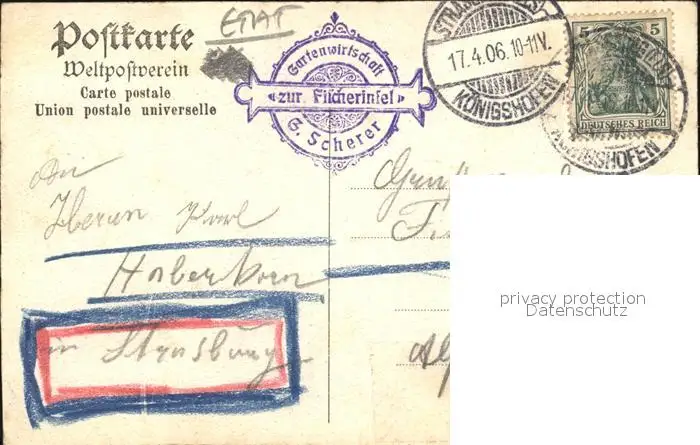 Postkarte
ETAT
Weltpostverein
Carte postale
Union postale universelle
Gartenwirtschaft
zur Fischerinsel
G. Scherer
17.4.06. 10-11V.
KÖNIGSHOFEN
5 5
DEUTSCHES REICH
KÖNIGSHOFEN
An
Herrn Karl
Haberkorn
in Strasburg
privacy protection
Datenschutz